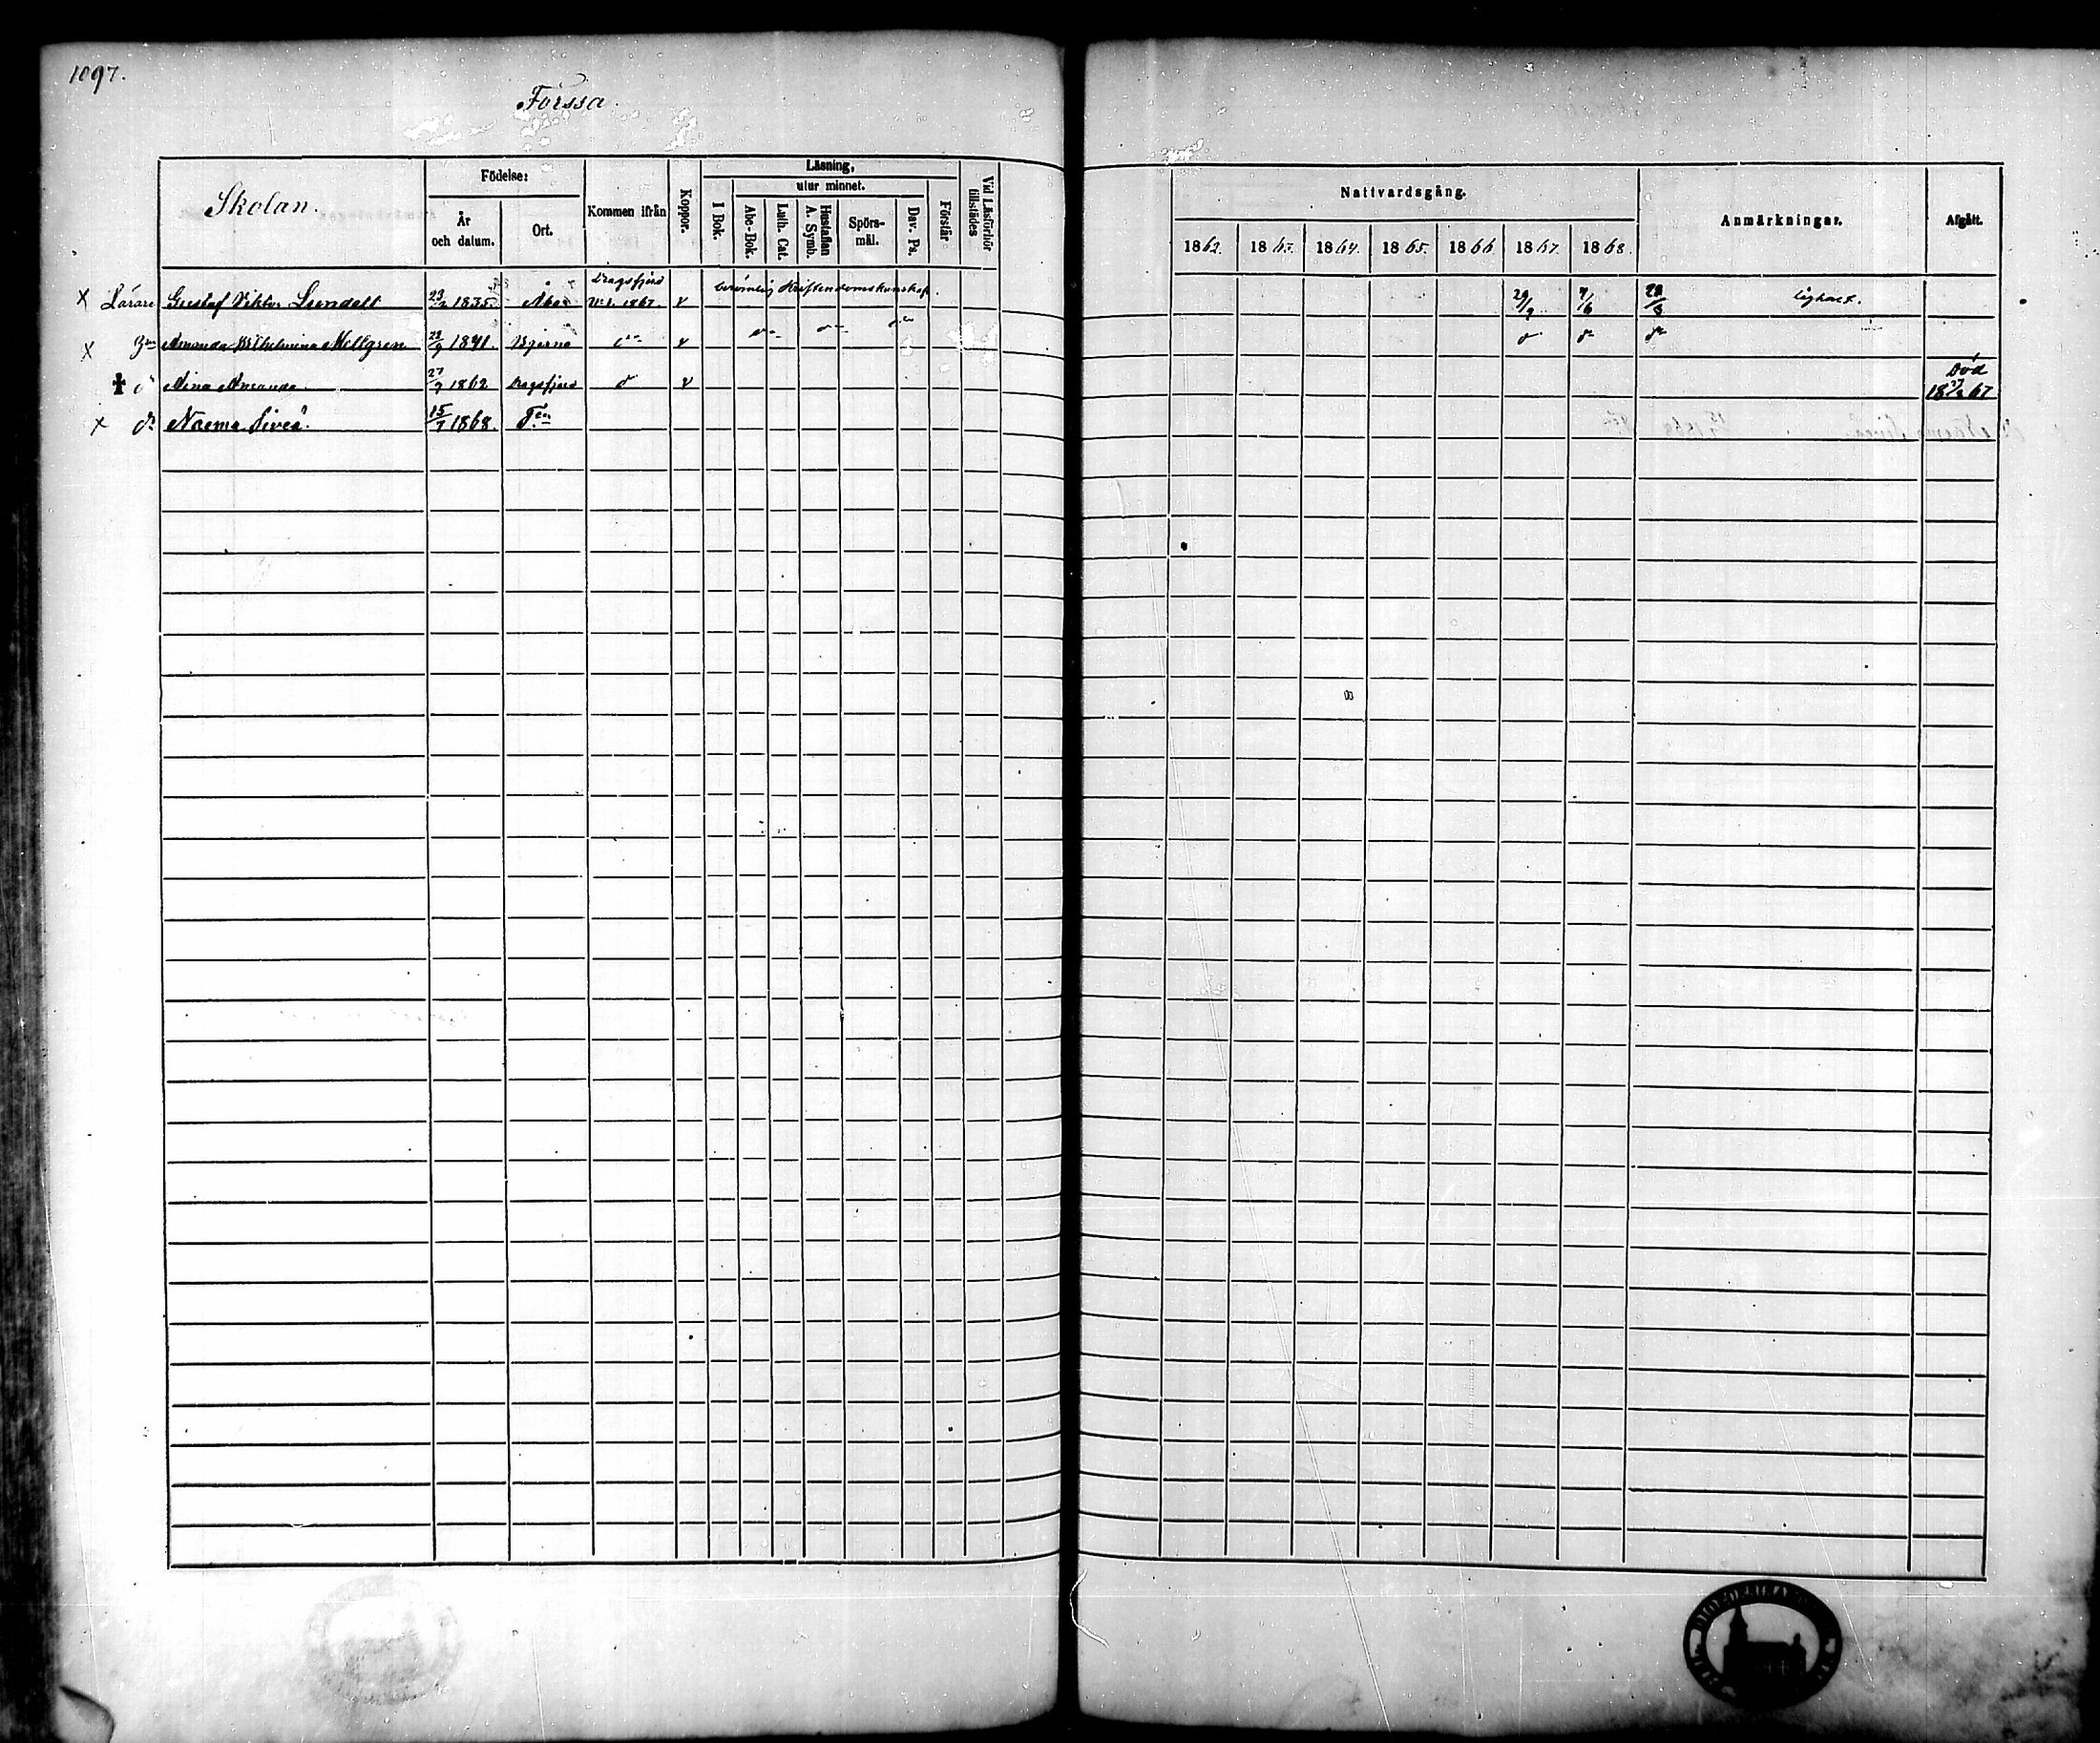 1097.
Forssa.
Skolan.
Födelse:
År och datum.
Ort.
Kommen ifrån
Koppor.
Läsning,
I Bok.
utur minnet.
Abc-Bok.
Luth. Cat.
Hustaflan A. Symb.
Spörs-mål.
Dav. Ps.
Förstår
Vid Läsförhör tillstädes
Nattvardsgång.
1862. 1863. 1864. 1865. 1866 1867. 1868.
Anmärkningar.
Afgått.
x Lärare Gustaf Viktor Lundell 23/2 1835. Åbo Dragsfjerd 1867. v berömlig Kristendomskunskap. 29/9 7/6
x Amanda Wilhelmina Mellgren 22/9 1841. Bjerno v
✝ Aina Amanda 27/7 1862 Dragsfjerd v Död 1867
x Naema Sivea. 15/7 1868.